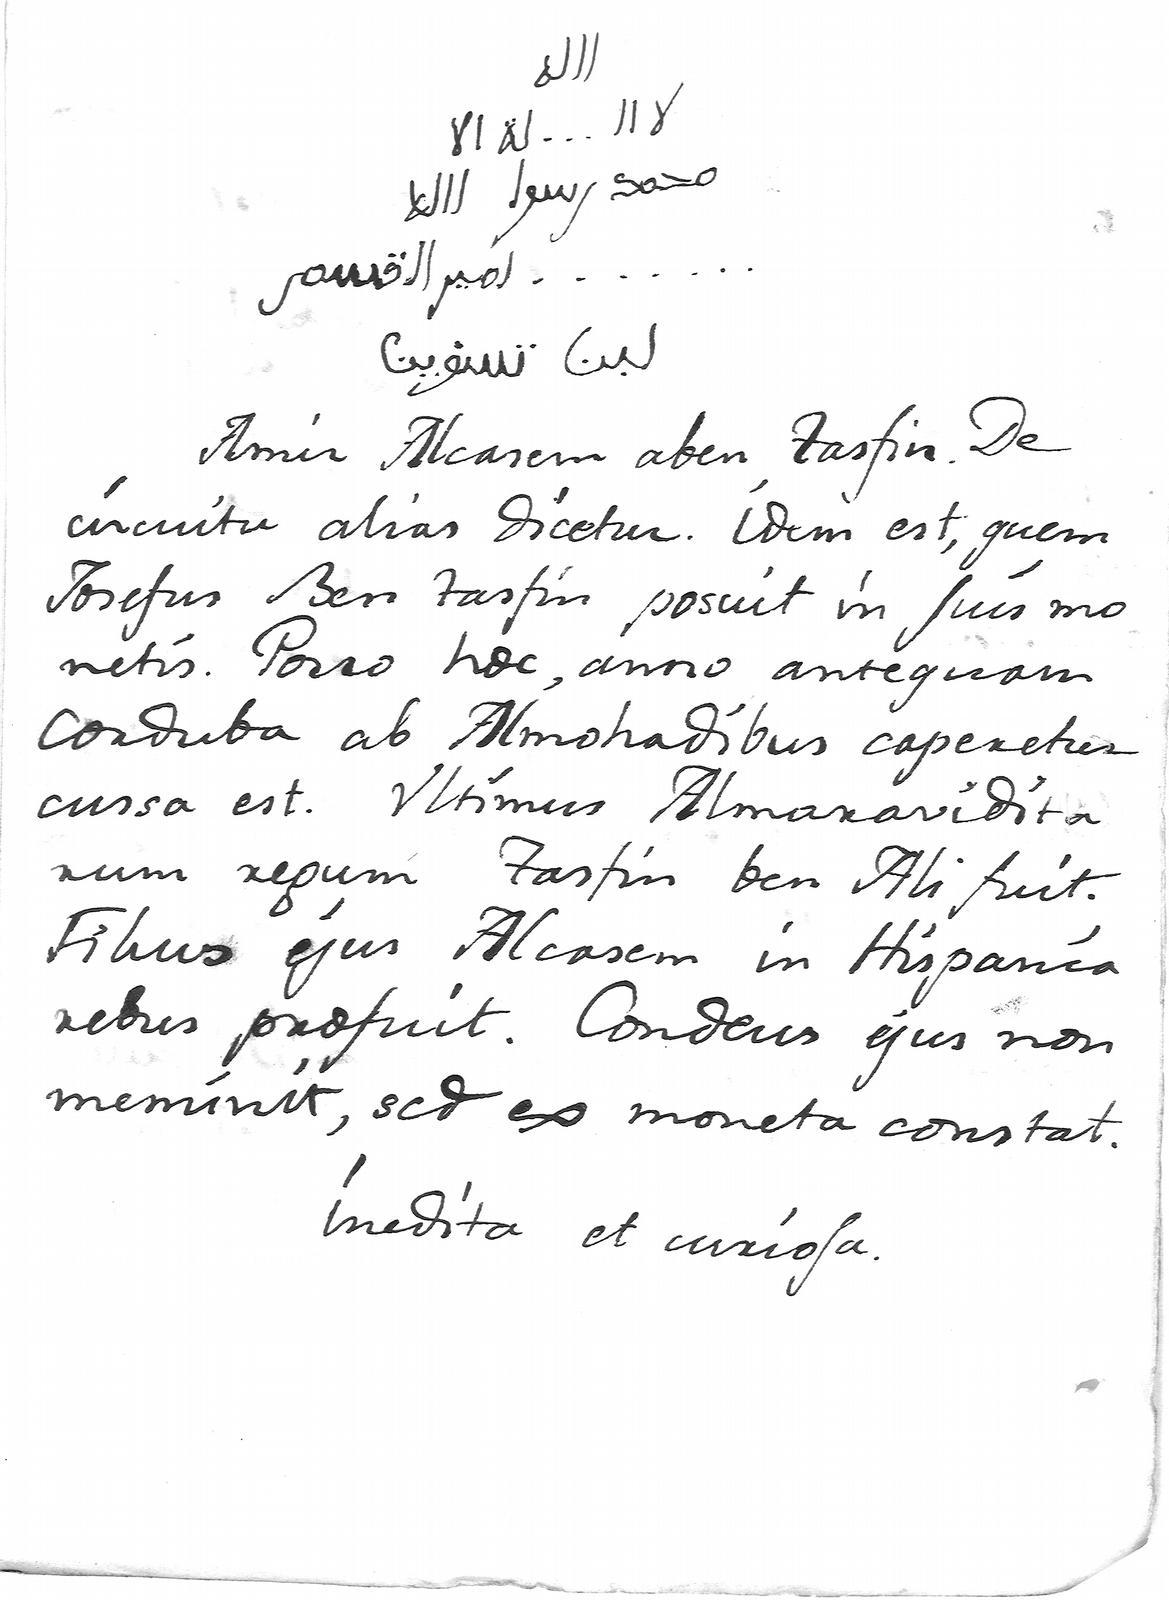 الله
لا ال...لة الا
محمد رسول الله
........امير القسم
ابن تسفين
Amir Alcasem aben Tasfin. De
circuitu alias dicetur. Idem est, quem
Josefus Ben Tasfin posuit in suis mo
netis. Porro hæc, anno antequam
Corduba ab Almohadibus caperetur
cussa est. Vltimus Almaravidita
rum regum Tasfin ben Ali fuit.
Filius ejus Alcasem in Hispania
rebus præfuit. Condeus ejus non
meminit, sed ex moneta constat.
inedita et curiosa.